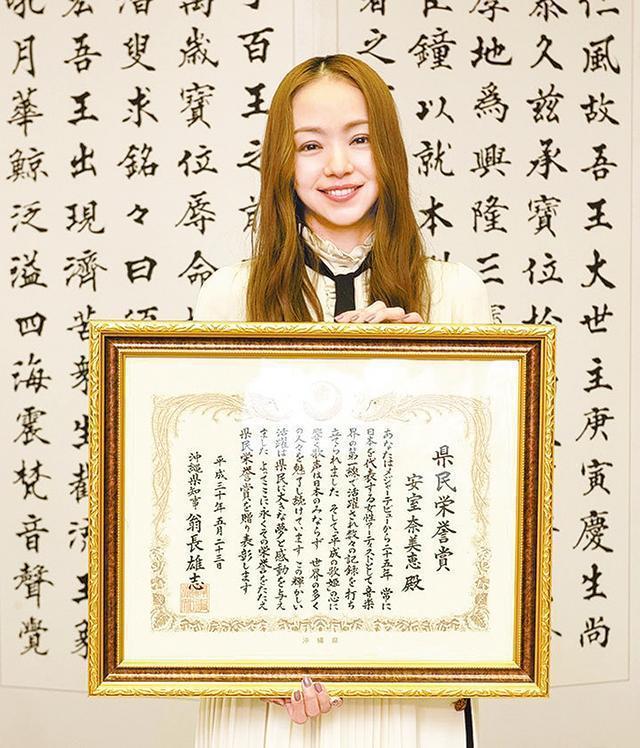 仁風故吾王大世主庚寅慶生尚
泰久茲承寶位於
厚地爲興隆三
鐘以就本
者之
百王之前
萬歳寶位辱命
叟求銘々曰
宏吾王出現濟苦衆生截流王象
吼月華鯨泛溢四海震梵音聲覺
県民栄誉賞
安室奈美恵 殿
あなたはメジャーデビューから二十五年 常に
日本を代表する女性アーティストとして音楽
界の第一線で活躍され数々の記録を打ち
立てられました そして平成の歌姫の心に
響く歌声は日本のみならず 世界の多く
の人々を魅了し続けています この輝かしい
活躍は県民に大きな夢と感動を与え
ました よってここに永くその栄誉をたたえ
県民栄誉賞を贈り表彰します
平成三十年五月二十三日
沖縄県知事 翁長雄志
沖縄県